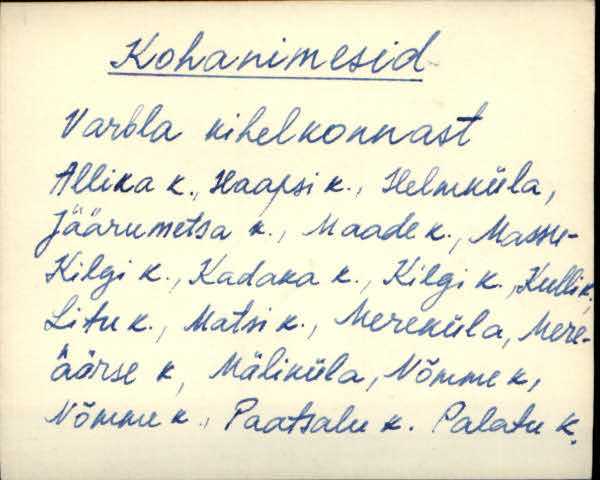 Kohanimesid
Varbla kihelkonnast
Allika k., Haapsi k., Helmküla,
Jäärumetsa k., Maade k., Massu-
Kilgi k., Kadaka k., Kilgi k., Kulli k.,
Litu k., Matsi k., Mereküla, Mere-
äärse k, Mäliküla, Nõmme k,
Nõmme k., Paatsalu k. Palatu k.